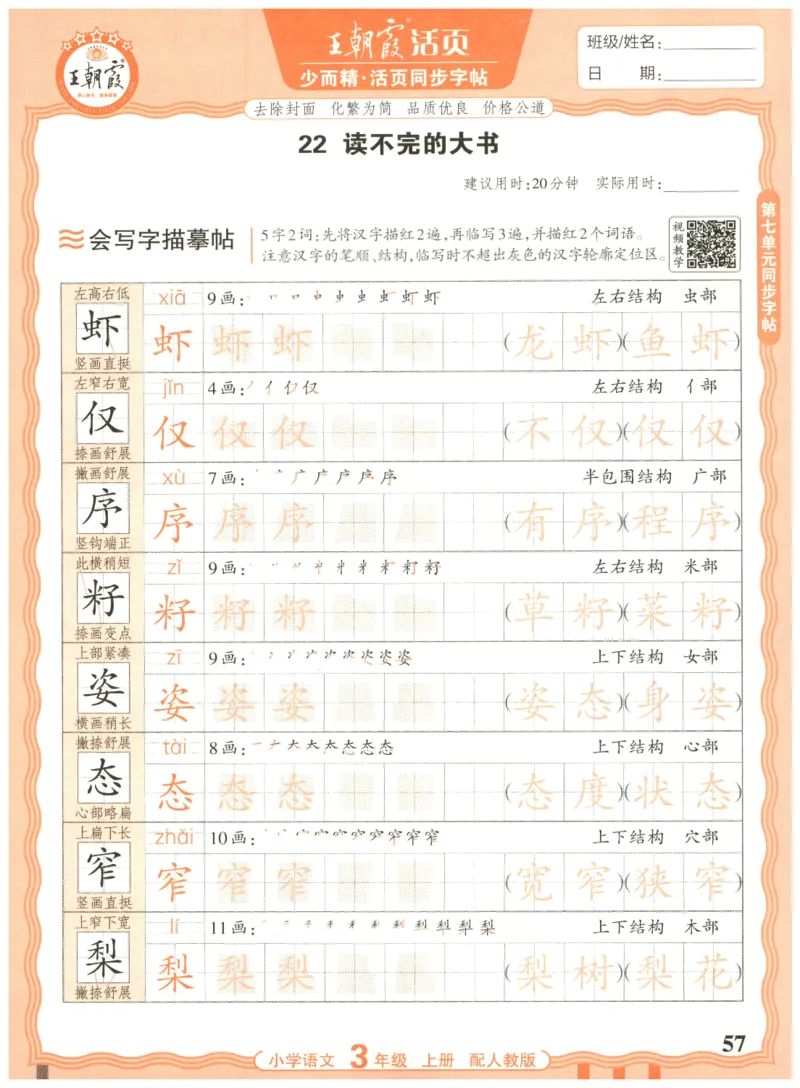 王朝霞®活页
少而精·活页同步字帖
王朝霞
班级/姓名：
日 期：
去除封面 化繁为简 品质优良 价格公道
22 读不完的大书
建议用时：20分钟 实际用时：
会写字描摹帖
5字2词：先将汉字描红2遍，再临写3遍，并描红2个词语。
注意汉字的笔顺、结构，临写时不超出灰色的汉字轮廓定位区。
视频教学
第七单元同步字帖
左高右低 xiā 9画： 左右结构 虫部
虾 虾 虾 虾 （龙虾）（鱼虾）
竖画直挺
左窄右宽 jǐn 4画：丿亻仅仅 左右结构 亻部
仅 仅 仅 仅 （不仅）（仅仅）
捺画舒展
撇画舒展 xù 7画： 半包围结构 广部
序 序 序 序 （有序）（程序）
竖钩端正
此横稍短 zǐ 9画： 左右结构 米部
籽 籽 籽 籽 （草籽）（菜籽）
捺画变点
上部紧凑 zī 9画： 上下结构 女部
姿 姿 姿 姿 （姿态）（身姿）
横画稍长
撇捺舒展 tài 8画： 上下结构 心部
态 态 态 态 （态度）（状态）
心部略扁
上扁下长 zhǎi 10画： 上下结构 穴部
窄 窄 窄 窄 （宽窄）（狭窄）
竖画直挺
上窄下宽 lí 11画： 上下结构 木部
梨 梨 梨 梨 （梨树）（梨花）
撇捺舒展
57
小学语文 3年级 上册 配人教版